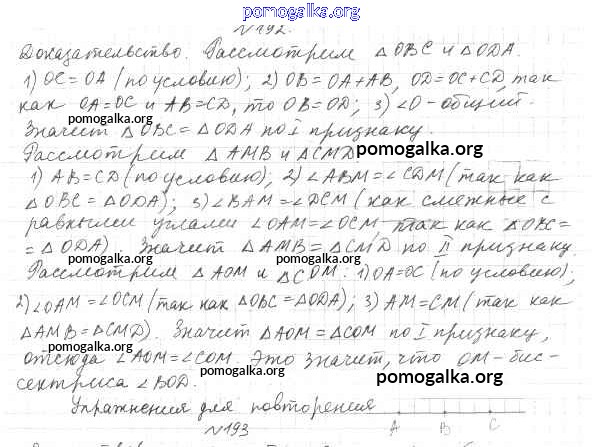 pomogalka.org
№192.
Доказательство. Рассмотрим △OBC и △ODA.
1) OC = OA (по условию); 2) OB = OA + AB, OD = OC + CD, так
как OA = OC и AB = CD, то OB = OD; 3) ∠O - общий.
Значит △OBC = △ODA по I признаку.
pomogalka.org
Рассмотрим △AMB и △CMD pomogalka.org
1) AB = CD (по условию); 2) ∠ABM = ∠CDM (так как
△OBC = △ODA); 3) ∠BAM = ∠DCM (как смежные с
pomogalka.org
равными углами ∠OAM = ∠OCM, так как △OBC =
= △ODA). Значит △AMB = △CMD по II признаку.
pomogalka.org
Рассмотрим △AOM и △COM: 1) OA = OC (по условию);
2) ∠OAM = ∠OCM (так как △OBC = △ODA); 3) AM = CM (так как
△AMB = △CMD). Значит △AOM = △COM по I признаку,
отсюда ∠AOM = ∠COM. Это значит, что OM - бис-
pomogalka.org
сектриса ∠BOD. pomogalka.org
Упражнения для повторения
pomogalka.org
№193 A B C